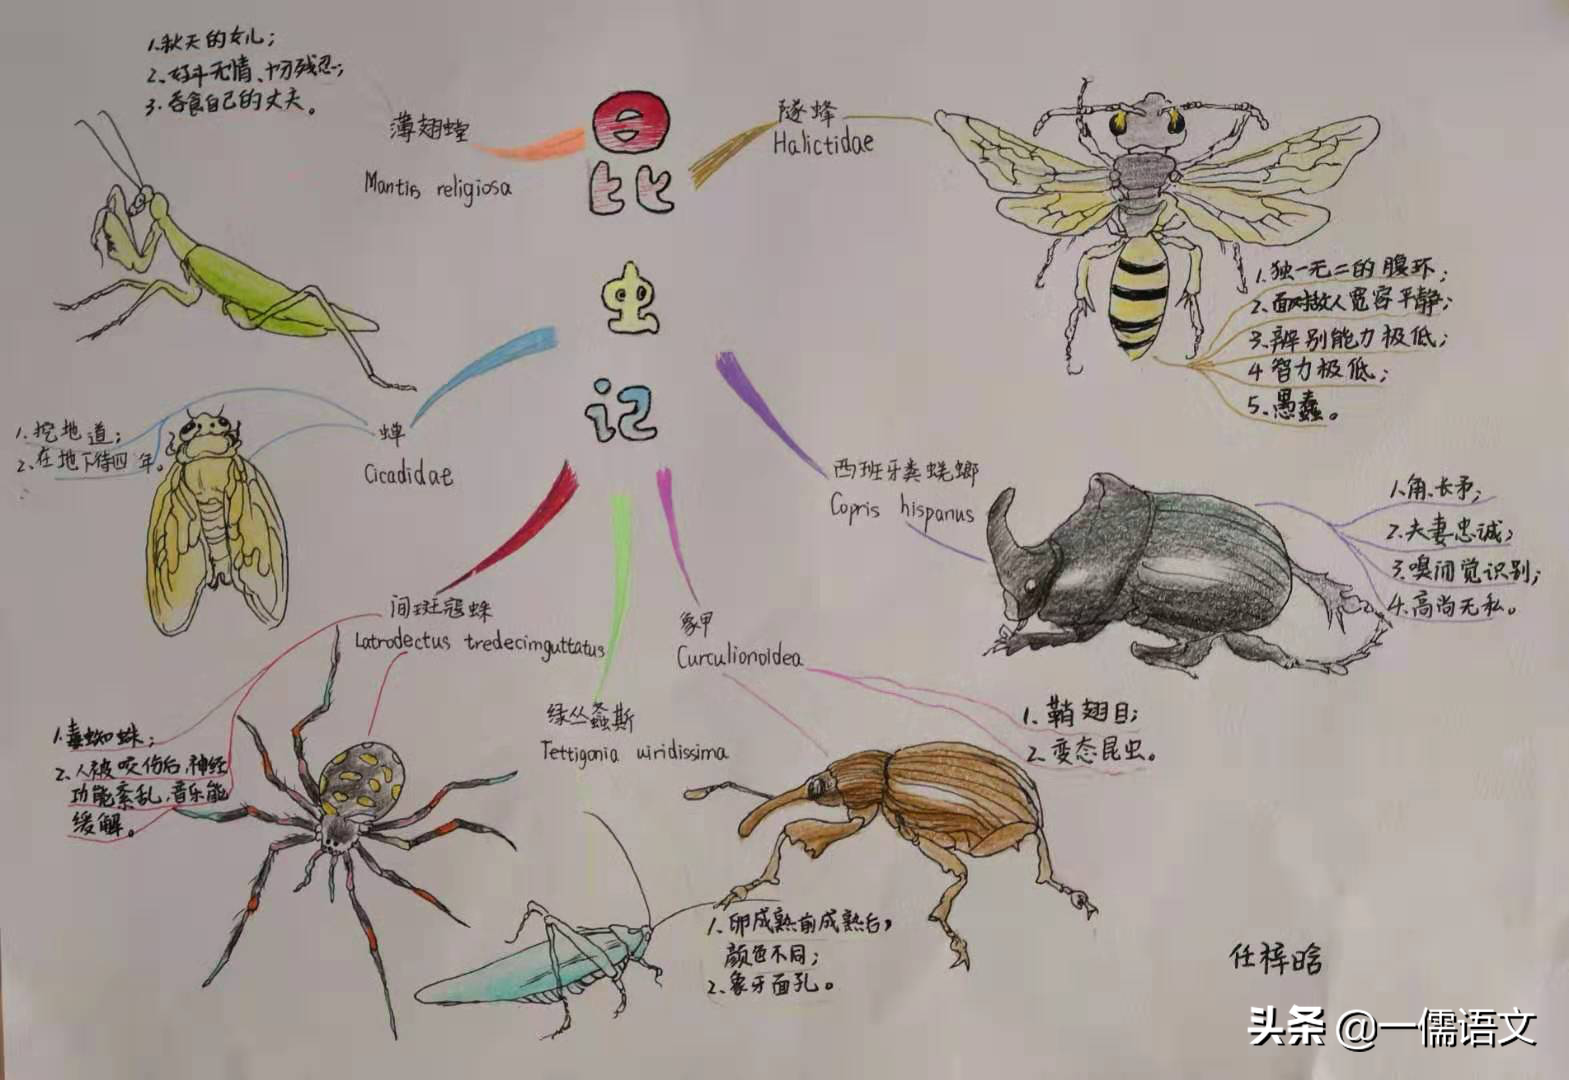 昆虫记
1.秋天的女儿；
2、好斗无情、十分残忍；
3.吞食自己的丈夫。
薄翅螳
Mantis religiosa
隧蜂
Halictidae
1.独一无二的腹环；
2.面对敌人宽容平静；
3.辨别能力极低；
4 智力极低；
5.愚蠢。
蝉
Cicadidae
1.挖地道；
2.在地下待四年。
西班牙粪蜣螂
Copris hispanus
1.角、长矛；
2.夫妻忠诚；
3.嗅闻觉识别；
4.高尚无私。
间斑寇蛛
Latrodectus tredecimguttatus
1.毒蜘蛛；
2.人被咬伤后,神经
功能紊乱,音乐能
缓解。
象甲
Curculionoidea
1.鞘翅目；
2.变态昆虫。
绿丛螽斯
Tettigonia viridissima
1.卵成熟前成熟后，
颜色不同；
2.象牙面孔。
任梓晗
头条 @一儒语文